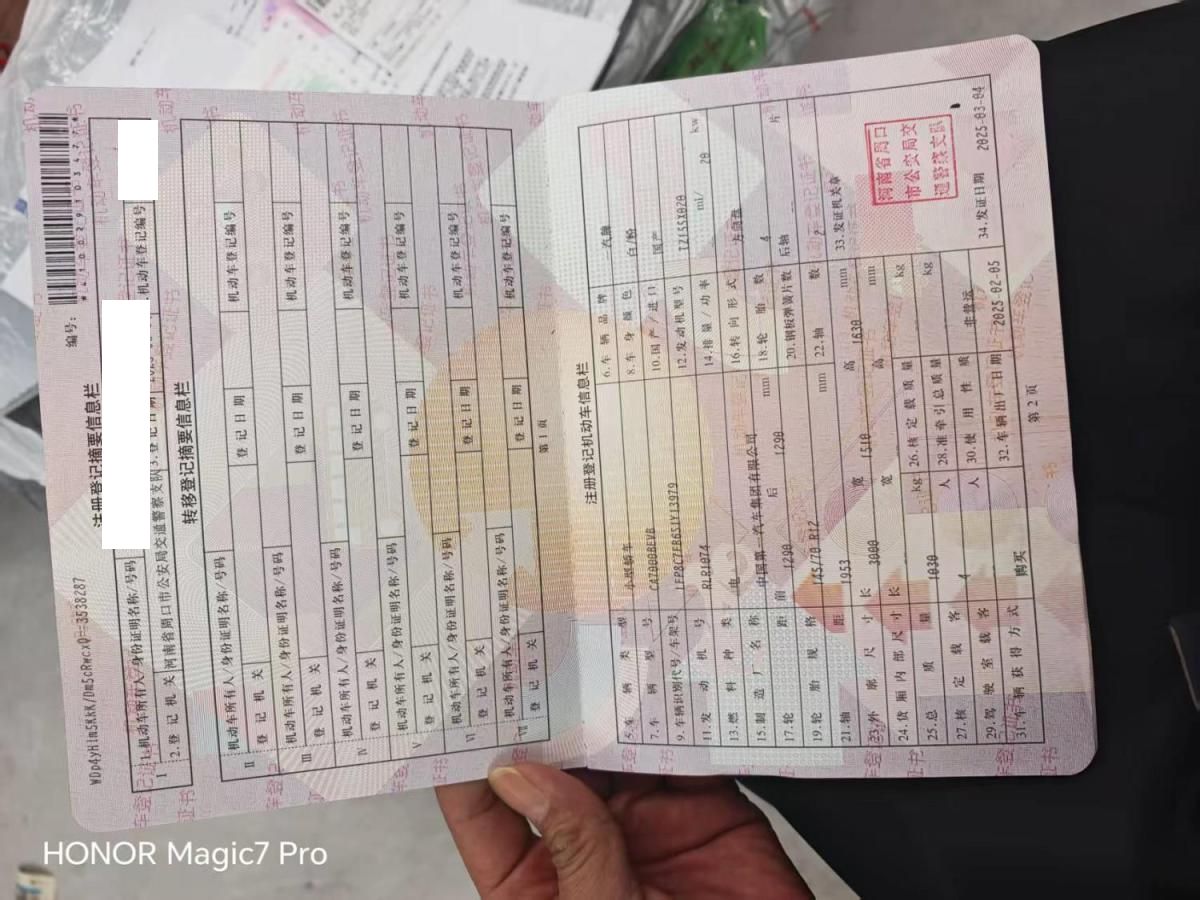 WDp4yH1m5KkK/Dm5cRwcxQ==3538287
编号:
注册登记摘要信息栏
I
1.机动车所有人/身份证明名称/号码
2.登记机关 河南省周口市公安局交通警察支队 3.登记日期
机动车登记编号
转移登记摘要信息栏
II
机动车所有人/身份证明名称/号码
登记机关 登记日期 机动车登记编号
III
机动车所有人/身份证明名称/号码
登记机关 登记日期 机动车登记编号
IV
机动车所有人/身份证明名称/号码
登记机关 登记日期 机动车登记编号
V
机动车所有人/身份证明名称/号码
登记机关 登记日期 机动车登记编号
VI
机动车所有人/身份证明名称/号码
登记机关 登记日期 机动车登记编号
VII
机动车所有人/身份证明名称/号码
登记机关 登记日期 机动车登记编号
第1页
注册登记机动车信息栏
5.车辆类型 小型轿车 6.车辆品牌
7.车辆型号 8.车身颜色 白/粉
9.车辆识别代号/车架号 LFP8C7FB6S1Y13979 10.国产/进口 国产
11.发动机号 RLR4074 12.发动机型号 TZ155X020
13.燃料种类 电 14.排量/功率 ml/ 20 kw
15.制造厂名称 中国第一汽车集团有限公司 16.转向形式 方向盘
17.轮距 前 1290 后 1290 mm 18.轮胎数 4
19.轮胎规格 145/70 R12 20.钢板弹簧片数 后轴 片
21.轴距 1953 mm 22.轴数 2
23.外廓尺寸 长 3000 宽 1510 高 1630 mm 33.发证机关章
24.货厢内部尺寸 长 宽 高 mm
25.总质量 1030 kg 26.核定载质量 kg
27.核定载客 4 人 28.准牵引总质量 kg
29.驾驶室载客 人 30.使用性质 非营运
31.车辆获得方式 购买 32.车辆出厂日期 2025-02-05 34.发证日期 2025-03-04
河南省周口
市公安局交
通警察支队
第2页
HONOR Magic7 Pro